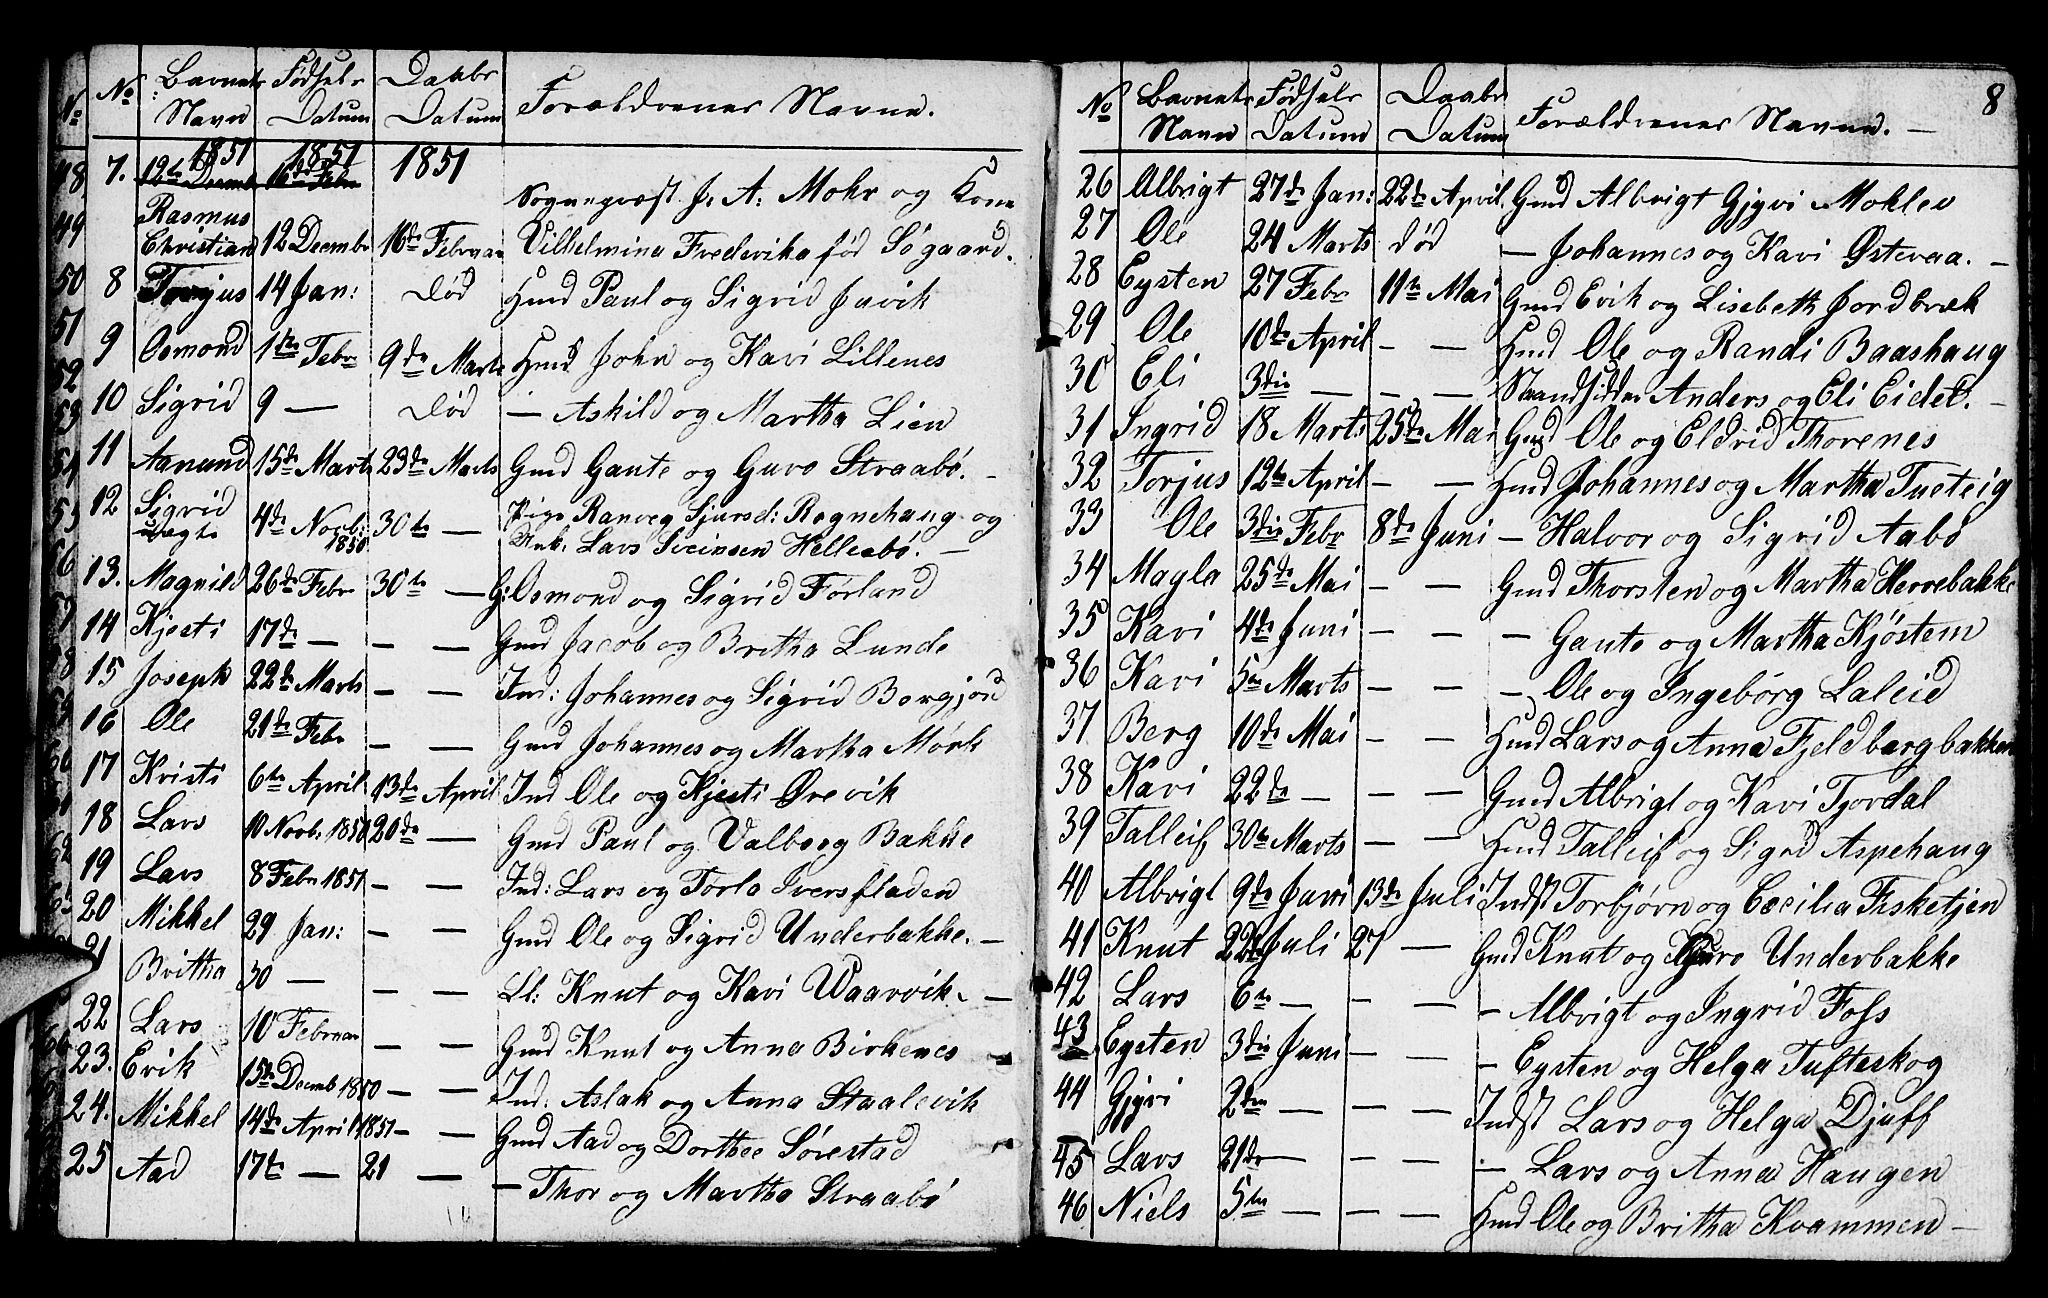 No Barnets Navn Fødsels Datum Daabs Datum Forældrenes Navne.
1851 1851 1851
7. 12te Decemb 16de Febr Sognepræst J. A. Mohr og Kone
Rasmus Christian 12 Decembr 16de Februar Vilhelmina Frederika fød Søgaard.
8 Torjus 14 Jan: død Hmd Paul og Sigrid Juvik
9 Osmond 1ste Febr 9de Marts Hmd John og Kari Lillenes
10 Sigrid 9 — død — Askild og Martha Lien
11 Aanund 15de Marts 23de Marts Gmd Gaute og Guro Straabø. —
12 Sigrid uægte 4de Novb: 1850 30te — Pige Ranveg Sjursd: Rognehaug og
Unk. Lars Sveinsen Hellesbø. —
13. Magnild 26de Febr 30te — G: Osmond og Sigrid Førland
14 Kjesti 17de — — — Gmd Jacob og Britha Lunde
15 Joseph 22de Marts — — Ind: Johannes og Sigrid Borgjord
16 Ole 21de Febr — — Gmd Johannes og Martha Mørk
17 Kristi 6te April 13de April Ind Ole og Kjesti Ørevik
18 Lars 10 Novb: 1850 20de — Gmd Paul og Valborg Bakke
19 Lars 8 Febr 1851 — — Ind: Lars og Torlo Iversfladen
20 Mikkel 29 Jan: — — Gmd Ole og Sigrid Underbakke. —
21 Britha 30 — — — Ll: Knut og Kari Waarvik. —
22 Lars 10 Februar — — Gmd Knut og Anna Birkenes —
23. Erik 15de Decemb 1850 — — Ind. Aslak og Anna Staalevik
24. Mikkel 14de April 1851 — — Gmd Aad og Dorthee Sørestad
25 Aad 17te — 21 — — Thor og Martha Straabø
8
No Barnets Navn Fødsels Datum Daabs Datum Forældrenes Navne. —
26 Albrigt 27de Jan: 22de April Gmd Albrigt Gjyri Moklev
27 Ole 24 Marts død — Johannes og Kari Østeraa. —
28 Eysten 27 Febr 11te Mai Gmd Erik og Lisebeth Jordbræk
29 Ole 10de April — — Hmd Ole og Randi Baashaug
30 Eli 3die — — — Strandsidder Anders og Eli Eidet. —
31 Ingrid 18 Marts 25de Mai Gmd Ole og Eldrid Thorenes
32 Torjus 12te April — — Hmd Johannes og Martha Tueteig
33 Ole 3die Febr 8de Juni — Halvor og Sigrid Aabø
34 Magla 25de Mai — — Gmd Thorsten og Martha Herrebakke
35 Kari 4de Juni — — — Gaute og Martha Kjøstem
36 Kari 5te Marts — — — Ole og Ingebørg Laleid
37 Berg 10de Mai — — Hmd Lars og Anna Fjeldbergbakken
38 Kari 22de — — — Gmd Albrigt og Kari Tjordal
39 Talleif 30te Marts — — Hmd Talleif og Sigrid Aspehaug
40 Albrigt 9de Juni 13de Juli Indst Torbjørn og Cecilia Fisketjen
41 Knut 22de Juli 27 — Gmd Knut og Guro Underbakke
42 Lars 6te — — — — Albrigt og Ingrid Foss
43 Eysten 3die Juni — — — Eysten og Helga Tufteskog
44 Gjyri 2den — — — Indst Lars og Helga Djuff
45 Lars 21de — — — — Lars og Anna Haugen
46 Niels 5te — — — Hmd Ole og Britha Kvammen —